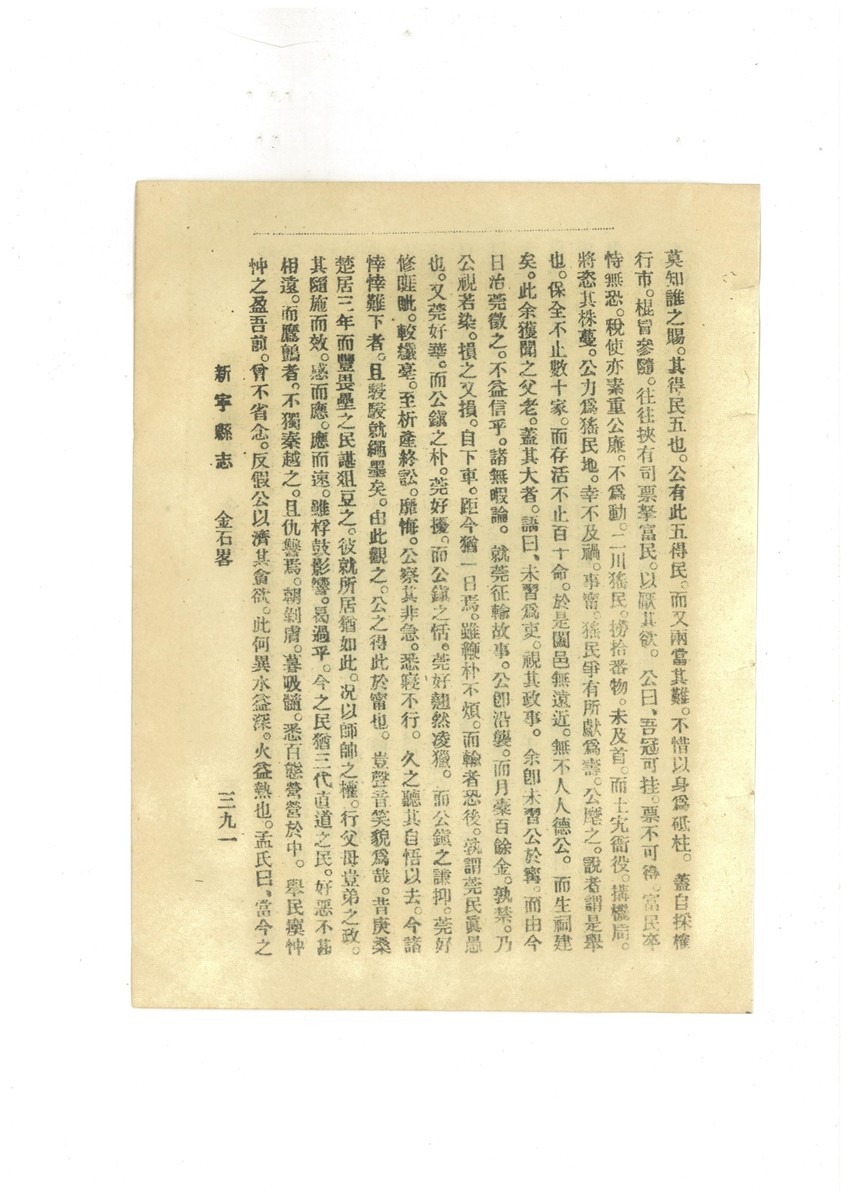 莫知誰之賜。其得民五也。公有此五得民。而又兩當其難。不惜以身爲砥柱。蓋自採榷
行市。棍旨參隨。往往挾有司票拏富民。以厭其欲。公曰、吾冠可挂。票不可得。富民卒
恃無恐。稅使亦素重公廉。不爲動。二川猺民。撈拾番物。未及首。而土宄衙役。搆機局。
將恣其株蔓。公力爲猺民地。幸不及禍。事甯。猺民爭有所獻爲壽。公麾之。說者謂是舉
也。保全不止數十家。而存活不止百十命。於是闔邑無遠近。無不人人德公。而生祠建
矣。此余獲聞之父老。蓋其大者。語曰、未習爲吏。視其政事。余卽未習公於甯。而由今
日治莞徵之。不益信乎。諸無暇論。就莞征輸故事。公卽沿襲。而月橐百餘金。孰禁。乃
公視若染。損之又損。自下車。距今猶一日焉。雖鞭朴不煩。而輸者恐後。孰謂莞民眞愚
也。又莞好華。而公鎭之朴。莞好擾。而公鎭之恬。莞好翹然凌獵。而公鎭之謙抑。莞好
修睚眦。較纖毫。至析產終訟。靡悔。公察其非急。悉寢不行。久之聽其自悟以去。今諸
悻悻難下者。且駸駸就繩墨矣。由此觀之。公之得此於甯也。豈聲音笑貌爲哉。昔庚桑
楚居三年而豐畏壘之民諶俎豆之。彼就所居猶如此。况以師帥之權。行父母豈弟之政。
其隨施而效。感而應。應而速。雖桴鼓影響。曷過乎。今之民猶三代直道之民。好惡不甚
相遠。而鷹鸇者。不獨秦越之。且仇讐焉。朝剝膚。暮吸髓。悉百態營營於中。舉民瘼忡
忡之盈吾前。曾不省念。反假公以濟其貪欲。此何異水益深。火益熱也。孟氏曰、當今之
新寧縣志 金石畧 三九一